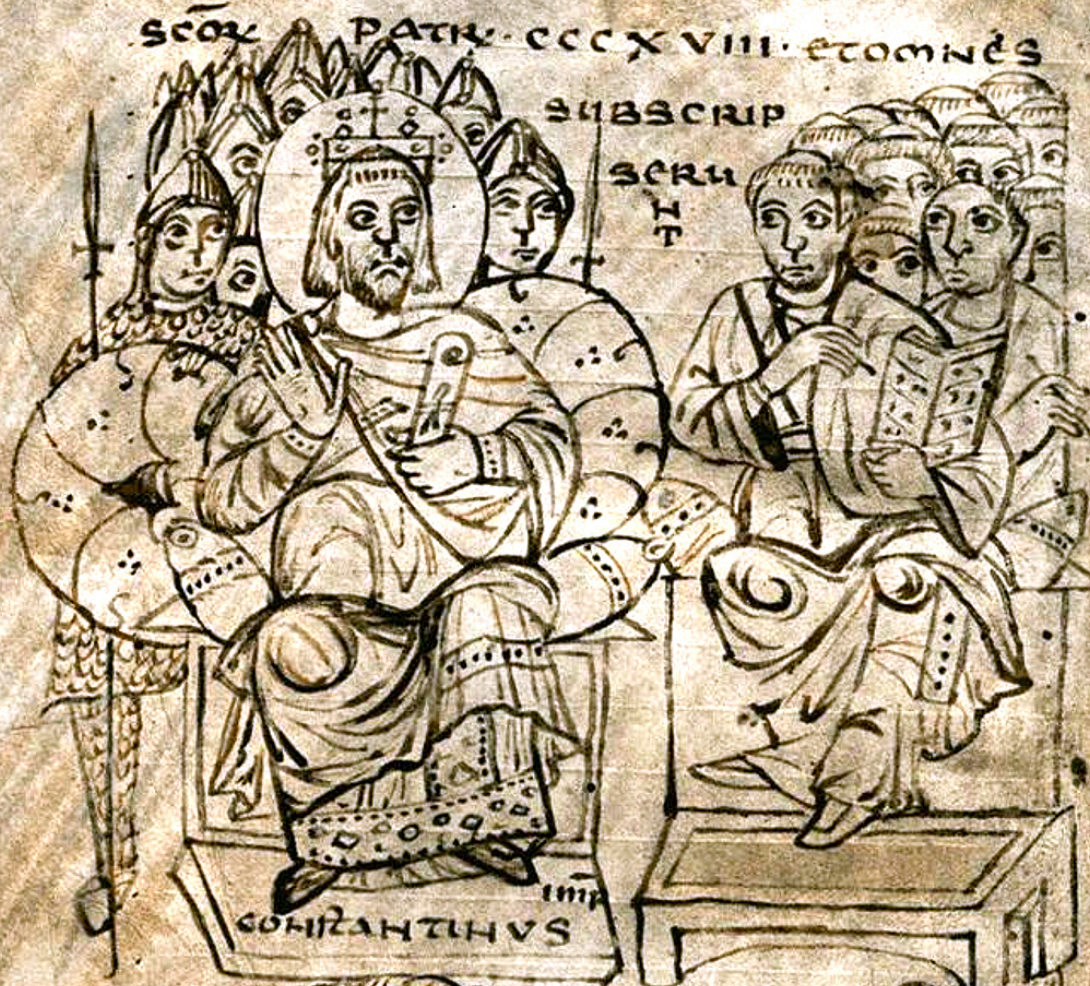 SCŌR PATR· CCCXVIII· ET OMNES
SUBSCRIP
SERU
N
T
IMP̄
CONSTANTINUS